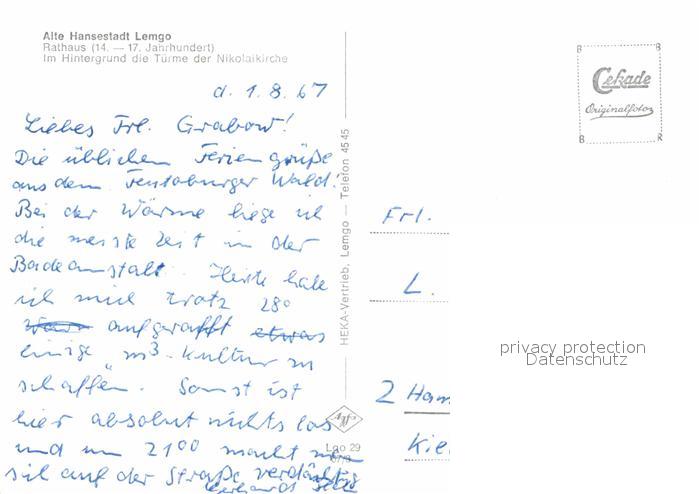 Alte Hansestadt Lemgo
Rathaus (14. — 17. Jahrhundert)
Im Hintergrund die Türme der Nikolaikirche
d. 1.8.67
Liebes Frl. Grabow!
Die üblichen Feriengrüße
aus dem Teutoburger Wald!
Bei der Wärme liege ich
die meiste Zeit in der
Badeanstalt. Heute habe
ich mich trotz 28°
aufgerafft etwas
einige m³ Kultur zu
schaffen. Sonst ist
hier absolut nichts los
und um 21⁰⁰ macht man
sich auf der Straße verdächtig
HEKA-Vertrieb, Lemgo — Telefon 45 45
Agfa
Lgo 29
Cekade
Originalfoto
B R
B R
Frl.
L.
2 Ham
Kie
privacy protection
Datenschutz